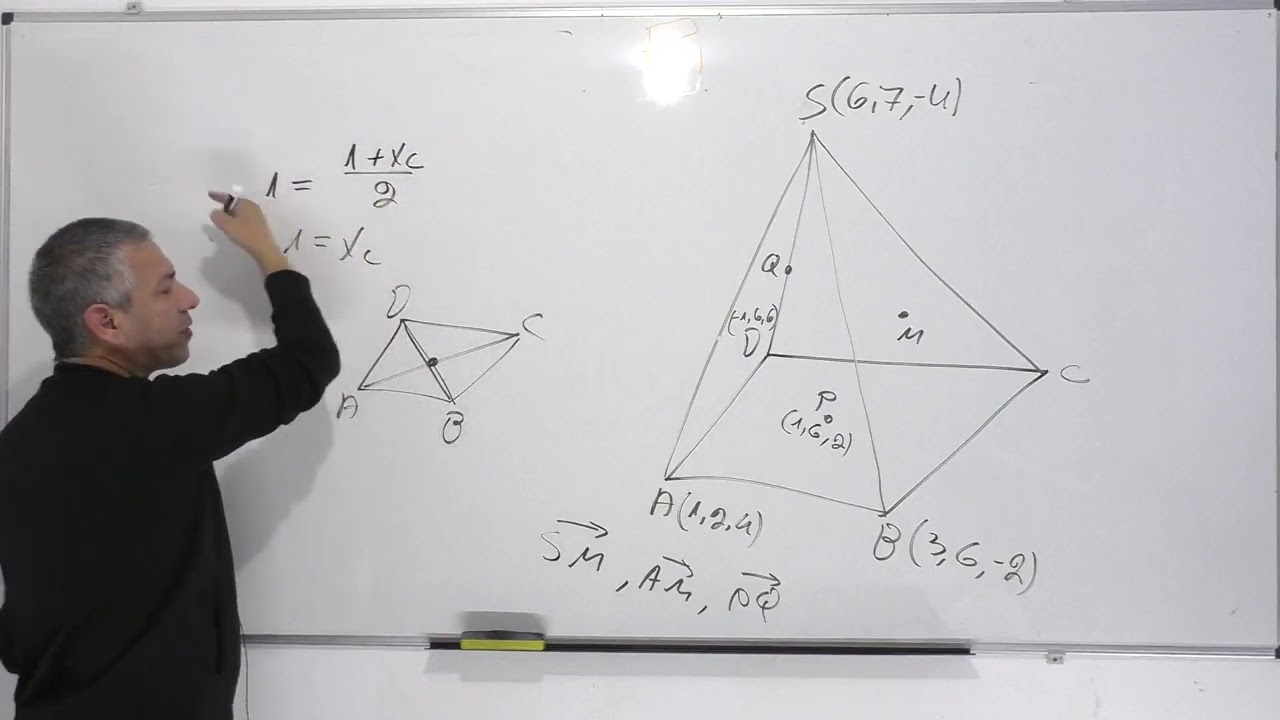 1 = (1 + Xc)/2
1 = Xc
D
C
A
B
S(6,7,-4)
Q
(-1,6,6)
D
M
C
P
(1,6,2)
A(1,2,4)
B(3,6,-2)
→SM, →AM, →PQ